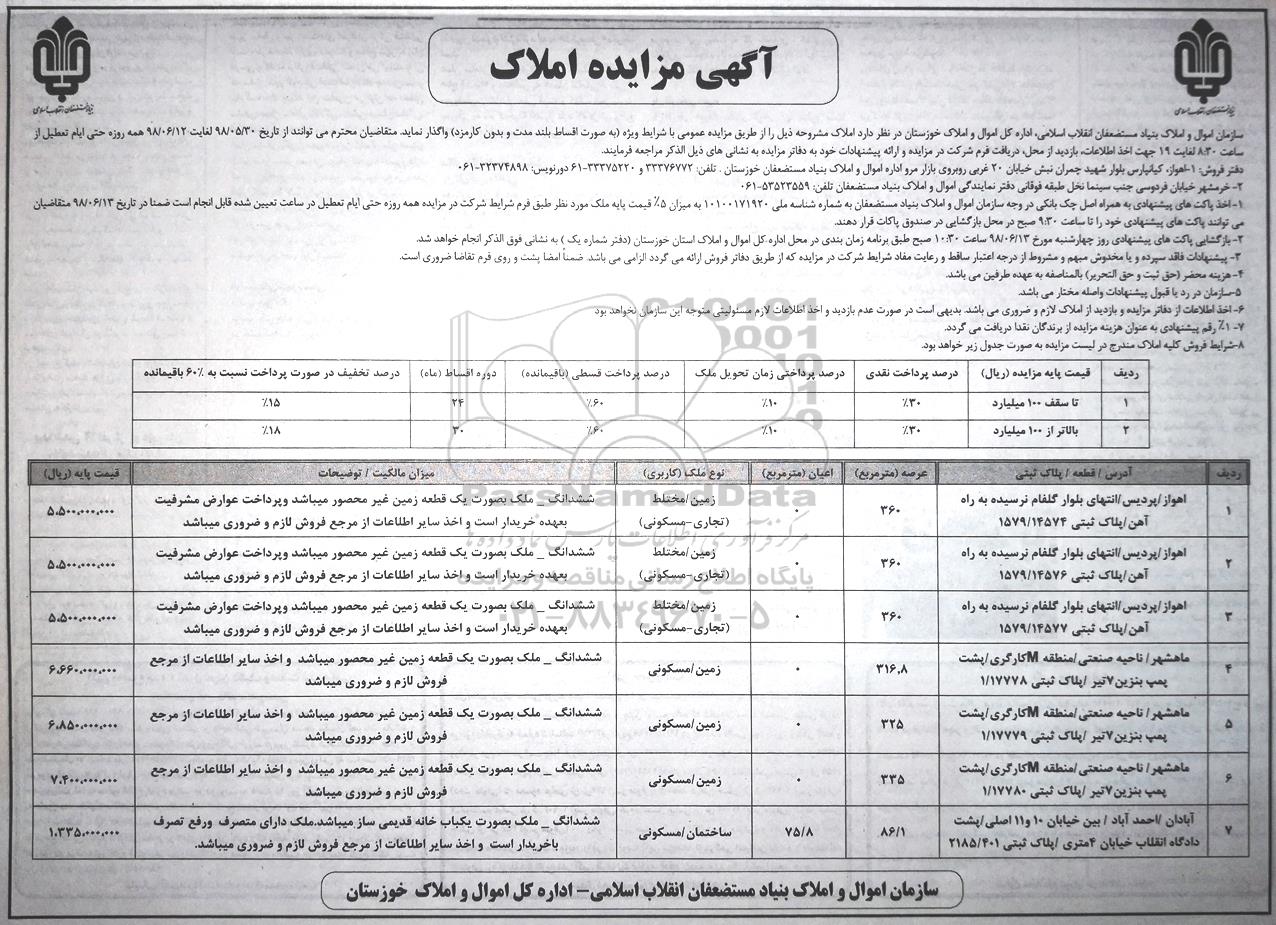 آگهی مزایده املاک
بنیاد مستضعفان انقلاب اسلامی
بنیاد مستضعفان انقلاب اسلامی
سازمان اموال و املاک بنیاد مستضعفان انقلاب اسلامی، اداره کل اموال و املاک خوزستان در نظر دارد املاک مشروحه ذیل را از طریق مزایده عمومی با شرایط ویژه (به صورت اقساط بلند مدت و بدون کارمزد) واگذار نماید. متقاضیان محترم می توانند از تاریخ ۹۸/۰۵/۳۰ لغایت ۹۸/۰۶/۱۲ همه روزه حتی ایام تعطیل از
ساعت ۸:۳۰ لغایت ۱۹ جهت اخذ اطلاعات، بازدید از محل، دریافت فرم شرکت در مزایده و ارائه پیشنهادات خود به دفاتر مزایده به نشانی های ذیل الذکر مراجعه فرمایند.
دفتر فروش: ۱-اهواز، کیانپارس بلوار شهید چمران نبش خیابان ۲۰ غربی روبروی بازار مرو اداره اموال و املاک بنیاد مستضعفان خوزستان . تلفن: ۳۳۳۷۶۷۷۲ و ۳۳۳۷۵۲۲۰-۰۶۱ دورنویس: ۳۲۳۷۴۸۹۸-۰۶۱
۲- خرمشهر خیابان فردوسی جنب سینما نخل طبقه فوقانی دفتر نمایندگی اموال و املاک بنیاد مستضعفان تلفن: ۵۳۵۲۳۵۵۹-۰۶۱
۱- اخذ پاکت های پیشنهادی به همراه اصل چک بانکی در وجه سازمان اموال و املاک بنیاد مستضعفان به شماره شناسه ملی ۱۰۱۰۰۱۷۱۹۲۰ به میزان ۵٪ قیمت پایه ملک مورد نظر طبق فرم شرایط شرکت در مزایده همه روزه حتی ایام تعطیل در ساعت تعیین شده قابل انجام است ضمنا در تاریخ ۹۸/۰۶/۱۳ متقاضیان
می توانند پاکت های پیشنهادی خود را تا ساعت ۹:۳۰ صبح در محل بازگشایی در صندوق پاکات قرار دهند.
۲- بازگشایی پاکت های پیشنهادی روز چهارشنبه مورخ ۹۸/۰۶/۱۳ ساعت ۱۰:۳۰ صبح طبق برنامه زمان بندی در محل اداره کل اموال و املاک استان خوزستان (دفتر شماره یک ) به نشانی فوق الذکر انجام خواهد شد.
۳- پیشنهادات فاقد سپرده و یا مخدوش مبهم و مشروط از درجه اعتبار ساقط و رعایت مفاد شرایط شرکت در مزایده که از طریق دفاتر فروش ارائه می گردد الزامی می باشد. ضمناً امضا پشت و روی فرم تقاضا ضروری است.
۴- هزینه محضر (حق ثبت و حق التحریر) بالمناصفه به عهده طرفین می باشد.
۵-سازمان در رد یا قبول پیشنهادات واصله مختار می باشد.
۶- اخذ اطلاعات از دفاتر مزایده و بازدید از املاک لازم و ضروری می باشد. بدیهی است در صورت عدم بازدید و اخذ اطلاعات لازم مسئولیتی متوجه این سازمان نخواهد بود
۷- ۱٪ رقم پیشنهادی به عنوان هزینه مزایده از برندگان نقدا دریافت می گردد.
۸-شرایط فروش کلیه املاک مندرج در لیست مزایده به صورت جدول زیر خواهد بود.
ردیف قیمت پایه مزایده (ریال) درصد پرداخت نقدی درصد پرداختی زمان تحویل ملک درصد پرداخت قسطی (باقیمانده) دوره اقساط (ماه) درصد تخفیف در صورت پرداخت نسبت به ۶۰٪ باقیمانده
۱ تا سقف ۱۰۰ میلیارد ۳۰٪ ۱۰٪ ۶۰٪ ۲۴ ۱۵٪
۲ بالاتر از ۱۰۰ میلیارد ۳۰٪ ۱۰٪ ۶۰٪ ۳۰ ۱۸٪
ردیف آدرس / قطعه / پلاک ثبتی عرصه (مترمربع) اعیان (مترمربع) نوع ملک (کاربری) میزان مالکیت / توضیحات قیمت پایه (ریال)
۱ اهواز/پردیس/انتهای بلوار گلفام نرسیده به راه ۳۶۰ ۰ زمین/مختلط ششدانگ _ ملک بصورت یک قطعه زمین غیر محصور میباشد وپرداخت عوارض مشرفیت ۵.۵۰۰.۰۰۰.۰۰۰
آهن/پلاک ثبتی ۱۵۷۹/۱۴۵۷۴ (تجاری-مسکونی) بعهده خریدار است و اخذ سایر اطلاعات از مرجع فروش لازم و ضروری میباشد
۲ اهواز/پردیس/انتهای بلوار گلفام نرسیده به راه ۳۶۰ ۰ زمین/مختلط ششدانگ _ ملک بصورت یک قطعه زمین غیر محصور میباشد وپرداخت عوارض مشرفیت ۵.۵۰۰.۰۰۰.۰۰۰
آهن/پلاک ثبتی ۱۵۷۹/۱۴۵۷۶ (تجاری-مسکونی) بعهده خریدار است و اخذ سایر اطلاعات از مرجع فروش لازم و ضروری میباشد
۳ اهواز/پردیس/انتهای بلوار گلفام نرسیده به راه ۳۶۰ ۰ زمین/مختلط ششدانگ _ ملک بصورت یک قطعه زمین غیر محصور میباشد وپرداخت عوارض مشرفیت ۵.۵۰۰.۰۰۰.۰۰۰
آهن/پلاک ثبتی ۱۵۷۹/۱۴۵۷۷ (تجاری-مسکونی) بعهده خریدار است و اخذ سایر اطلاعات از مرجع فروش لازم و ضروری میباشد
۴ ماهشهر/ ناحیه صنعتی/منطقه Mکارگری/پشت ۳۱۶,۸ ۰ زمین/مسکونی ششدانگ _ ملک بصورت یک قطعه زمین غیر محصور میباشد و اخذ سایر اطلاعات از مرجع ۶.۶۶۰.۰۰۰.۰۰۰
پمپ بنزین۷تیر /پلاک ثبتی ۱/۱۷۷۷۸ فروش لازم و ضروری میباشد
۵ ماهشهر/ ناحیه صنعتی/منطقه Mکارگری/پشت ۳۲۵ ۰ زمین/مسکونی ششدانگ _ ملک بصورت یک قطعه زمین غیر محصور میباشد و اخذ سایر اطلاعات از مرجع ۶.۸۵۰.۰۰۰.۰۰۰
پمپ بنزین۷تیر /پلاک ثبتی ۱/۱۷۷۷۹ فروش لازم و ضروری میباشد
۶ ماهشهر/ ناحیه صنعتی/منطقه Mکارگری/پشت ۳۳۵ ۰ زمین/مسکونی ششدانگ _ ملک بصورت یک قطعه زمین غیر محصور میباشد و اخذ سایر اطلاعات از مرجع ۷.۴۰۰.۰۰۰.۰۰۰
پمپ بنزین۷تیر /پلاک ثبتی ۱/۱۷۷۸۰ فروش لازم و ضروری میباشد
۷ آبادان /احمد آباد / بین خیابان ۱۰ و۱۱ اصلی/پشت ۸۶/۱ ۷۵/۸ ساختمان/مسکونی ششدانگ _ ملک بصورت یکباب خانه قدیمی ساز میباشد.ملک دارای متصرف ورفع تصرف ۱.۳۳۵.۰۰۰.۰۰۰
دادگاه انقلاب خیابان ۴متری /پلاک ثبتی ۲۱۸۵/۴۰۱ باخریدار است و اخذ سایر اطلاعات از مرجع فروش لازم و ضروری میباشد.
ParsNamadData
مرکز فرآوری اطلاعات پارس نماد داده ها
پایگاه اطلاع رسانی مناقصه و مزایده
۰۲۱-۸۸۳۴۹۶۷۰-۵
سازمان اموال و املاک بنیاد مستضعفان انقلاب اسلامی- اداره کل اموال و املاک خوزستان